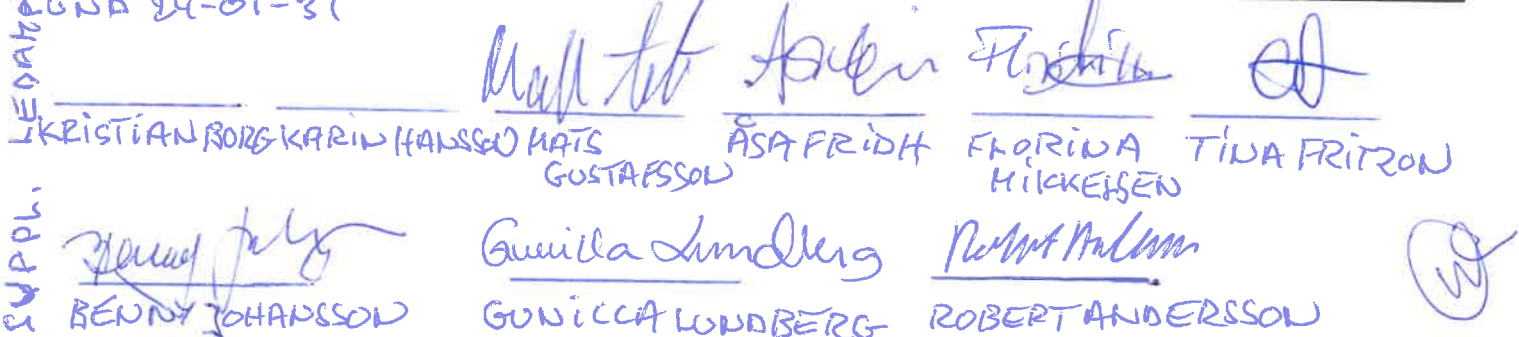 LUND 24-01-31
LEDAM
KRISTIAN BORG KARIN HANSSON MATS GUSTAFSSON ÅSA FRIDH FLORINA MIKKELSEN TINA FRITZON
SUPPL.
Gunilla Lundberg
BENNY JOHANSSON GUNILLA LUNDBERG ROBERT ANDERSSON